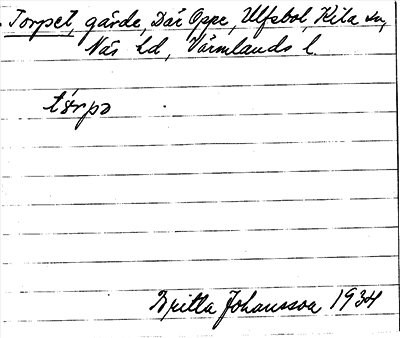 Torpet, gärde, Där Oppe, Ulfsbol, Kila sn,
Näs hd, Värmlands l.
Britta Johansson 1934